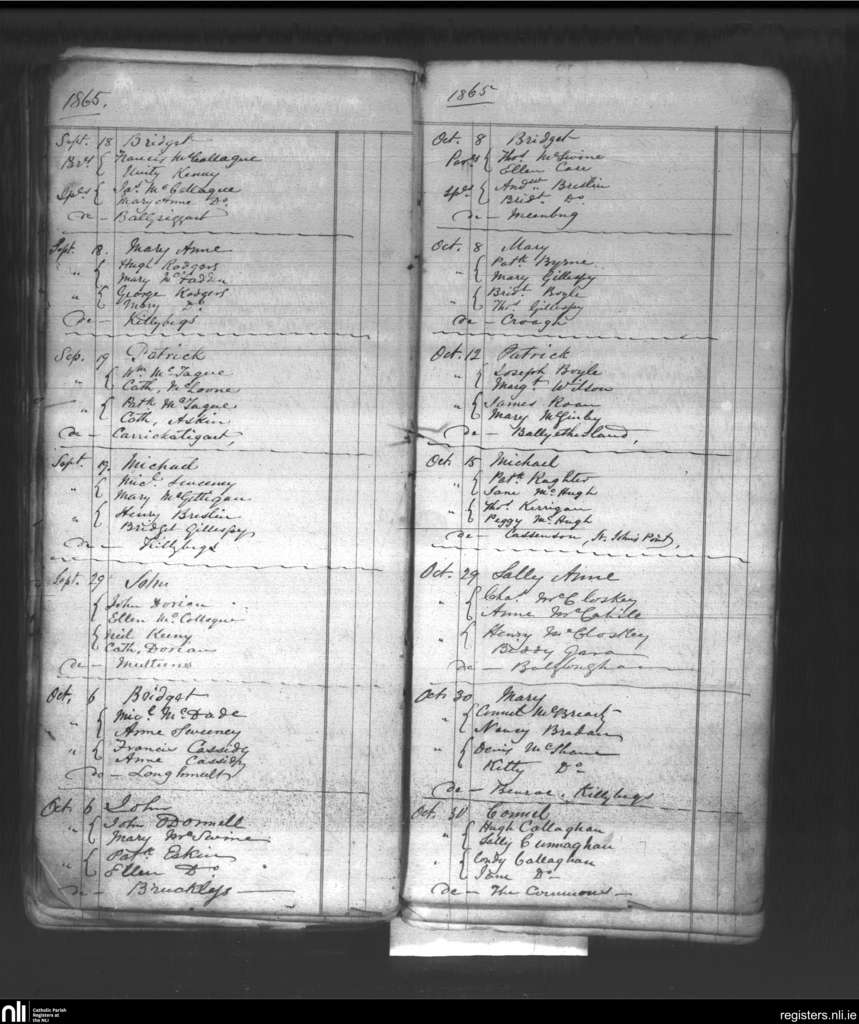 1865.
Sept. 18 Bridget
Francis McCollague
Unity Kenny
Jas. McCollague
Mary Anne Do.
de - Ballriggart
Sept. 18. Mary Anne
" Hugh Rodgers
Mary McFadden
" George Rodgers
Mary Do.
de - Killybegs
Sep. 19 Patrick
" Wm. McTague
Cath. McLoone
" Patk McTague
Cath. Askin
de - Carrickatigart,
Sept. 19. Michael
" Micl. Sweeney
Mary McGettigan
" Henry Breslin
Bridget Gillespy
de - Killybegs
Sept. 29 John
John Dorian
Ellen McCollogue
Neil Keeny
Cath. Dorian
de -
Oct. 6 Bridget
" Micl. McDade
Anne Sweeney
" Francis Cassidy
Anne Cassidy
do -
Oct 6 John
" John O'Donnell
Mary McSwine
" Patk Eskin
Ellen Do.
de - Bruckleys -
1865
Oct. 8 Bridget
Thos. McSwine
Ellen Case
Andrew Breslin
Bridt. Do.
de - Meenbug
Oct. 8 Mary
" Patk Byrne
Mary Gillespy
" Bridt. Boyle
Thos. Gillespy
de - Croagh
Oct. 12 Patrick
" Joseph Boyle
Margt. Wilson
" James Roan
Mary McGinley
de - Ballyetherland,
Oct. 15 Michael
" Patk Raghter
Jane McHugh
" Thos. Kerrigan
Peggy McHugh
de - Cassenson, St. John's Point,
Oct. 29 Sally Anne
" Chas. McCloskey
Anne McCahill
" Henry McCloskey
Biddy Gara
de -
Oct 30 Mary
" Connel McBrearty
Nancy Bradan
" Denis McShane
Kitty Do
de - Fenroe, Killybegs
Oct. 30 Connel
" Hugh Callaghan
Sally Cunnaghan
" Condy Callaghan
Jane Do
de - The Commons -
nli
Catholic Parish
Registers at
the NLI
registers.nli.ie